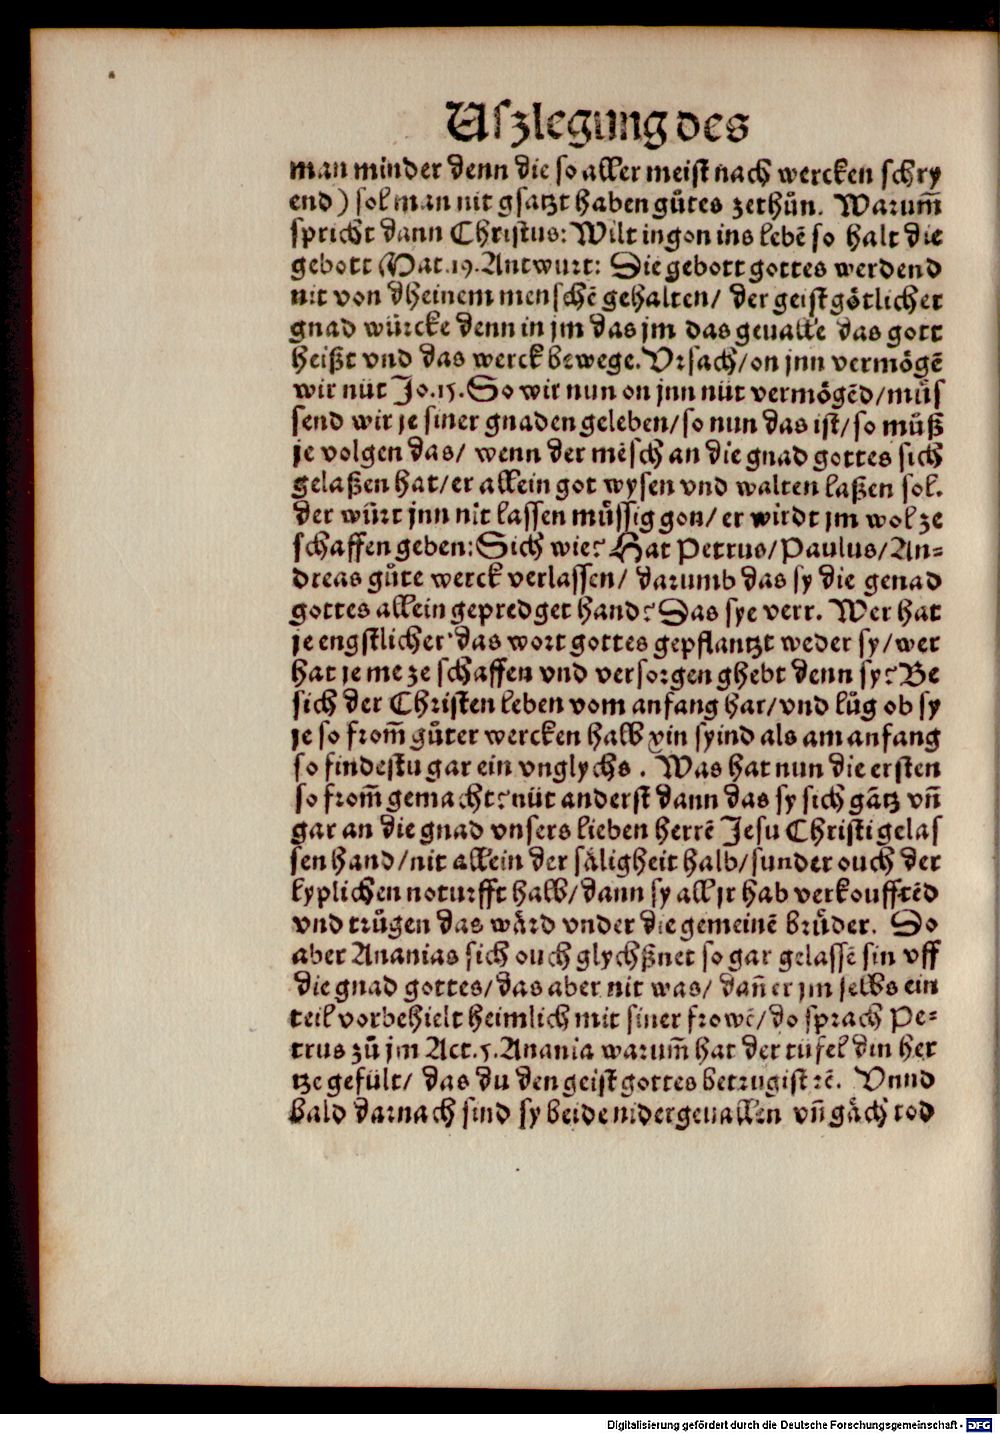 Uſzlegung des
man minder denn die ſo aller meiſt nach wercken ſchry
end) ſol man nit gſatzt haben gůtes zethůn. Warum̃
ſpricht dann Chriſtus: Wilt ingon ins lebē ſo halt die
gebott Mat.19. Antwurt: Die gebott gottes werdend
nit von dheinem menſchē gehalten/ der geiſt götlicher
gnad würcke denn in jm das jm das geualle das gott
heißt vnd das werck bewege. Vrſach/ on jnn vermögē
wir nüt Jo.15. So wir nun on jnn nüt vermögēd/ müſ
ſend wir je ſiner gnaden geleben/ ſo nun das iſt/ ſo můß
je volgen das/ wenn der mēſch an die gnad gottes ſich
gelaßen hat/ er allein got wyſen vnd walten laßen ſol.
der würt jnn nit laſſen müſſig gon/ er wirdt jm wol ze
ſchaffen geben: Sich wie? Hat Petrus/ Paulus/ An-
dreas gůte werck verlaſſen/ darumb das ſy die genad
gottes allein gepredget hand? Das ſye verr. Wer hat
je engſtlicher das wort gottes gepflantzt weder ſy/ wer
hat je me ze ſchaffen vnd verſorgen ghebt denn ſy? Be
ſich der Chriſten leben vom anfang har/ vnd lůg ob ſy
je ſo from̃ gůter wercken halb xin ſyind als am anfang
ſo findeſtu gar ein vnglychs. Was hat nun die erſten
ſo from̃ gemacht? nüt anderſt dann das ſy ſich gātz vñ
gar an die gnad vnſers lieben herrē Jeſu Chriſti gelaſ
ſen hand/ nit allein der ſäligheit halb/ ſunder ouch der
lyplichen noturfft halb/ dann ſy all jr hab verkoufftēd
vnd trůgen das wärd vnder die gemeinē brüder. Do
aber Ananias ſich ouch glychßnet ſo gar gelaſſē ſin vff
die gnad gottes/ das aber nit was/ dañ er jm ſelbs ein
teil vorbehielt heimlich mit ſiner frowē/ do ſprach Pe-
trus zů jm Act.5. Anania warum̃ hat der tüfel din her
tze gefült/ das du den geiſt gottes betrugiſt ꝛē. Vnnd
bald darnach ſind ſy beide nidergeuallen vñ gäch tod
Digitalisierung gefördert durch die Deutsche Forschungsgemeinschaft - DFG